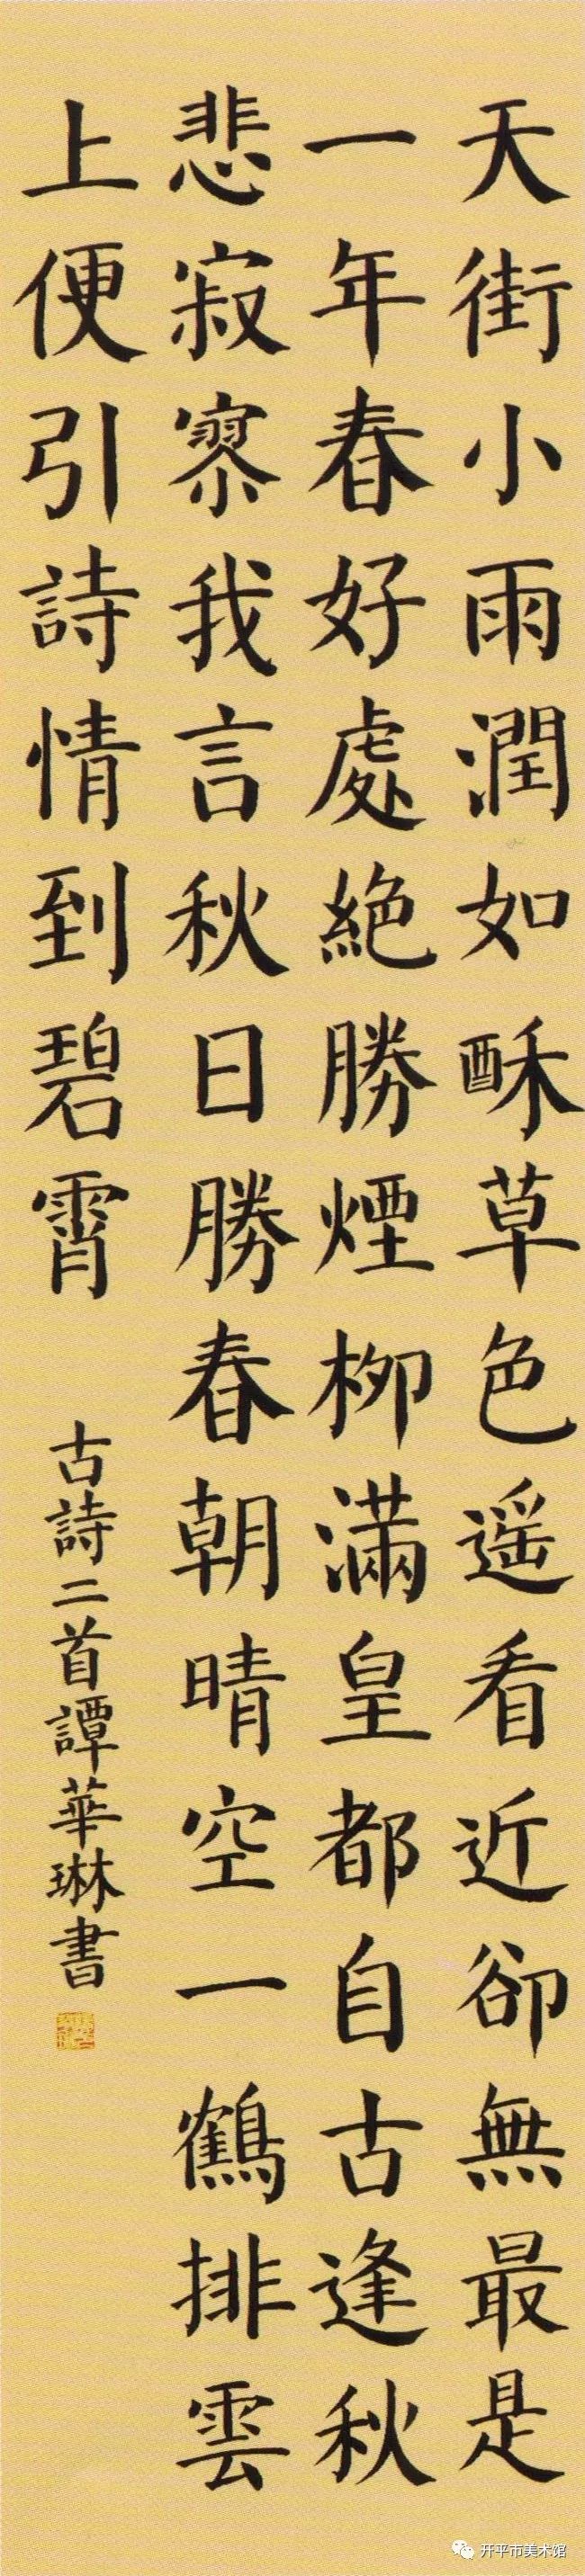 天街小雨潤如酥草色遥看近卻無最是
一年春好處絶勝煙柳滿皇都自古逢秋
悲寂寥我言秋日勝春朝晴空一鶴排雲
上便引詩情到碧霄
古詩二首譚華琳書
开平市美术馆